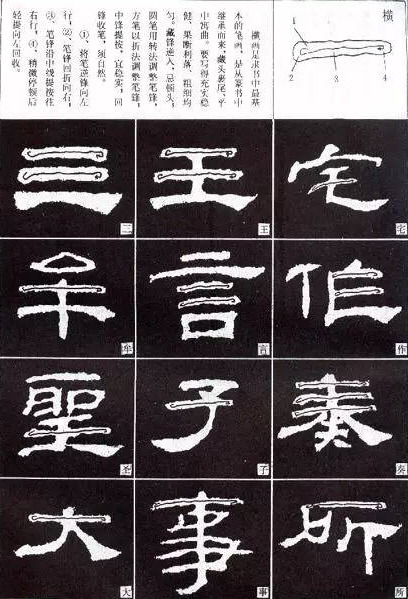 横
1
2
3
4
横画是隶书中最基
本的笔画，是从篆书中
继承而来，藏头裹尾，平
中寓曲，要写得充实稳
健，果断利落，粗细均
匀。藏锋逆入，忌顿头，
圆笔用转法调整笔锋，
方笔以折法调整笔锋，
中锋提按，宜稳实，回
锋收笔，须自然。
①、将笔逆锋向左
行，②、笔锋回折向右，
③、笔锋沿中线提按往
右行，④、稍微停顿后
轻提向左回收。
宅
宅
王
王
三
三
作
作
言
言
牟
牟
奏
奏
子
子
聖
圣
所
所
事
事
大
大